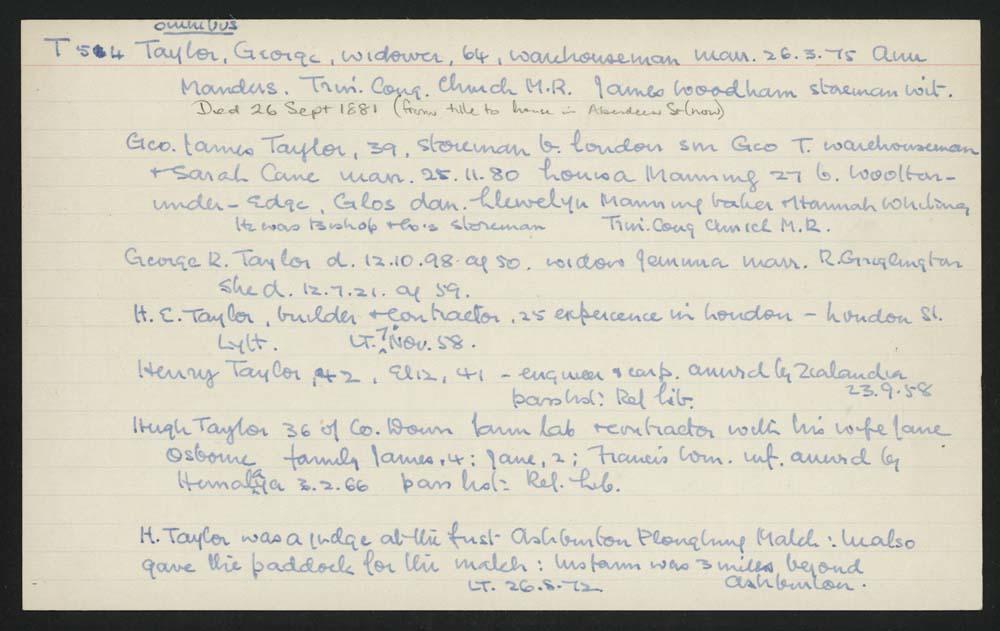 omnibus
T504 Taylor, George, widower, 64, warehouseman marr. 26.3.75 Ann
Manders. Trin. Cong. Church M.R. James Woodham storeman wit.
Died 26 Sept 1881 (from title to house in Aberdeen St (now)
Geo. James Taylor, 39, storeman b. London son Geo T. warehouseman
+ Sarah Cane marr. 25.11.80 Louisa Manning 27 b. Wootton-
under-Edge, Glos dau. Llewelyn Manning baker + Hannah Whiting
He was Bishop + Co's storeman Trin. Cong Church M.R.
George R. Taylor d. 12.10.98 ag 50. widow Jemima marr. R. Griglington
She d. 12.7.21. ag 59.
H. E. Taylor, builder + contractor, 25 experience in London - London St.
Lytt. LT. 7 Nov. 58.
Henry Taylor, 42, Eliz, 41 - engineer + carp. arrived by Zealandia
pass list: Ref Lib. 23.9.58
Hugh Taylor 36 of Co. Down farm lab + contractor with his wife Jane
Osborne family James, 4; Jane, 2; Francis Wm. inf. arrived by
Himalaya 3.2.66 pass list: Ref. Lib.
H. Taylor was a judge at the first Ashburton Ploughing Match: he also
gave the paddock for the match: his farm was 3 miles beyond
LT. 26.8.72 Ashburton.